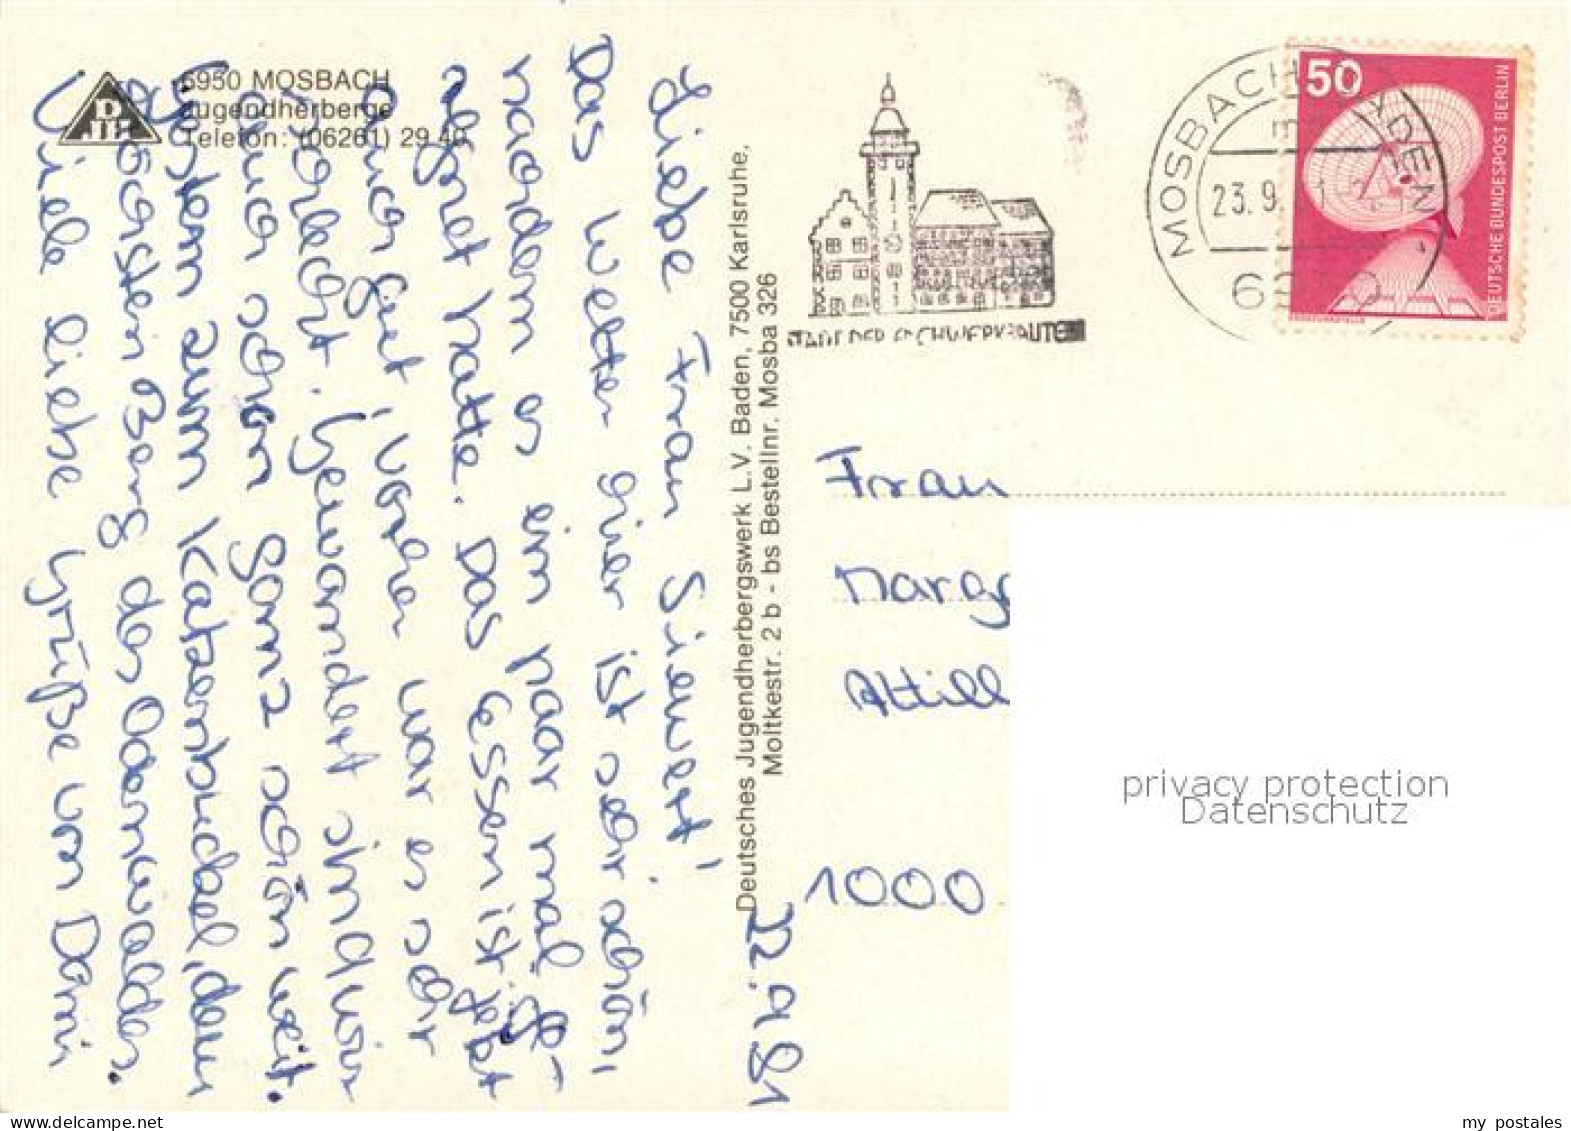 6950 MOSBACH
Jugendherberge
Telefon: (06261) 29 40
DJH
22.9.81
Liebe Frau Siewert!
Das Wetter hier ist sehr schön,
nachdem es ein paar mal ge-
regnet hatte. Das Essen ist jetzt
sehr gut, vorher war es sehr
schlecht. Gewandert sind wir
auch schon ganz schön weit.
Gestern zum Katzenbuckel, dem
höchsten Berg des Odenwaldes.
Viele liebe Grüße von Dani
Deutsches Jugendherbergswerk L.V. Baden, 7500 Karlsruhe,
Moltkestr. 2 b - bs Bestellnr. Mosba 326
STADT DER FACHWERKBAUTEN
MOSBACH, BADEN
23.9.
50
DEUTSCHE BUNDESPOST BERLIN
Frau
Marg
Attill
1000
privacy protection
Datenschutz
my_postales